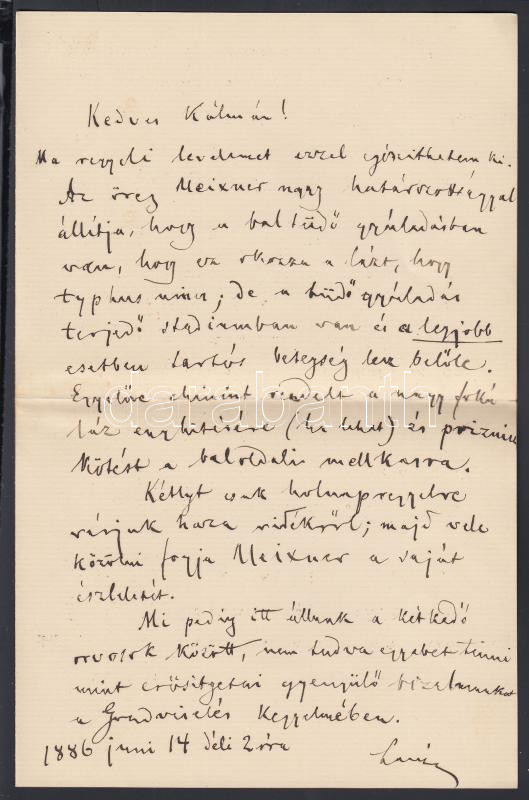 Kedves Kálmán!
Ma reggeli levelemet ezzel egészithetem ki.
Az öreg Meixner nagy határozottsággal
állítja, hogy a baltüdő gyúladásban
van, hogy ez okozza a lázt, hogy
typhus nincs; de a tüdő gyúladás
terjedő stadiumban van és a legjobb
esetben tartós betegség lesz belőle.
Egyelőre chinint rendelt a nagy fokú
láz enyhitésére (ha lehet) és priznicz
kötést a baloldali mellkasra.
Kétlyt csak holnapreggelre
várjuk haza vidékről; majd vele
közölni fogja Meixner a saját
észleletét.
Mi pedig itt állunk a kétkedő
orvosok között, nem tudva egyebet tenni
mint erősitgetni gyengülő bizalmunkat
a Gondviselés kegyelmében.
1886 juni 14 déli 2 óra
darabanth